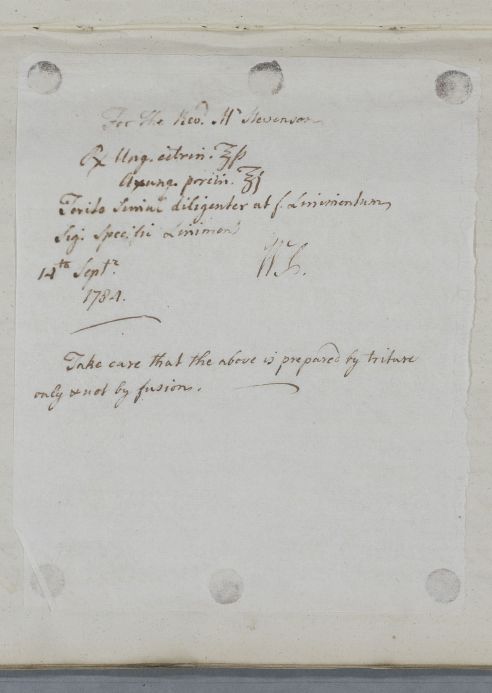 For the Revd. Mr Stevenson
℞ Ung. citrin. ʒß
Axung. porcin. ʒj
Terito Simul diligenter ut f. Linimentum
Sig. Specific Liniment
14th Septr.
1784.
Take care that the above is prepared by triture
only & not by fusion.